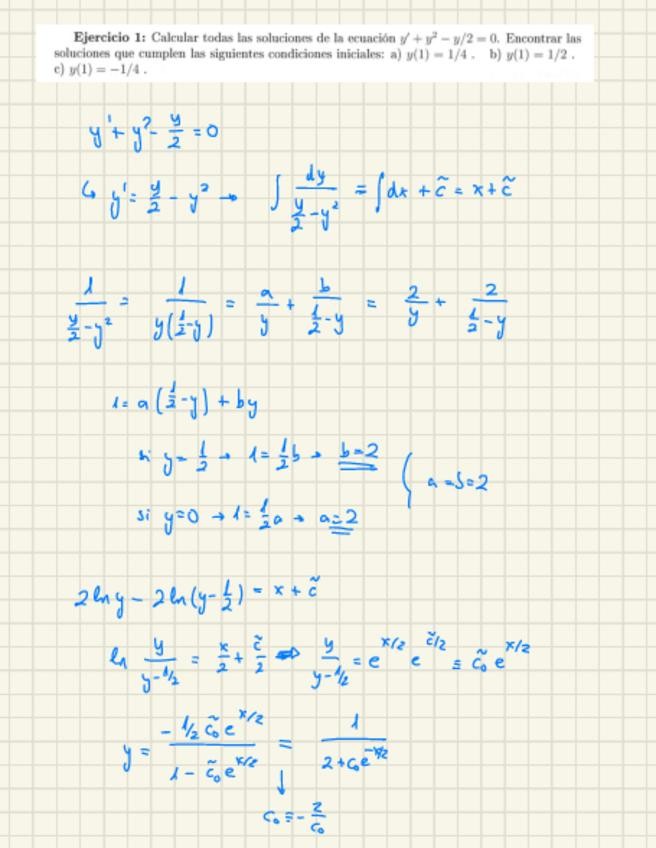 Ejercicio 1: Calcular todas las soluciones de la ecuación y' + y² − y/2 = 0. Encontrar las
soluciones que cumplen las siguientes condiciones iniciales: a) y(1) = 1/4 . b) y(1) = 1/2 .
c) y(1) = −1/4 .
y' + y² - y/2 = 0
↳ y' = y/2 - y² → ∫ dy/(y/2 - y²) = ∫dx + c̃ = x + c̃
1/(y/2 - y²) = 1/(y(1/2 - y)) = a/y + b/(1/2 - y) = 2/y + 2/(1/2 - y)
1 = a(1/2 - y) + by
si y = 1/2 → 1 = 1/2 b → b = 2
{ a = b = 2
si y = 0 → 1 = 1/2 a → a = 2
2 ln y - 2 ln(y - 1/2) = x + c̃
ln y/(y - 1/2) = x/2 + c̃/2 ⇒ y/(y - 1/2) = e^(x/2) e^(c̃/2) ≡ c̃₀ e^(x/2)
y = (- 1/2 c̃₀ e^(x/2))/(1 - c̃₀ e^(x/2)) = 1/(2 + c₀ e^(-x/2))
↓
c₀ ≡ - 2/c₀